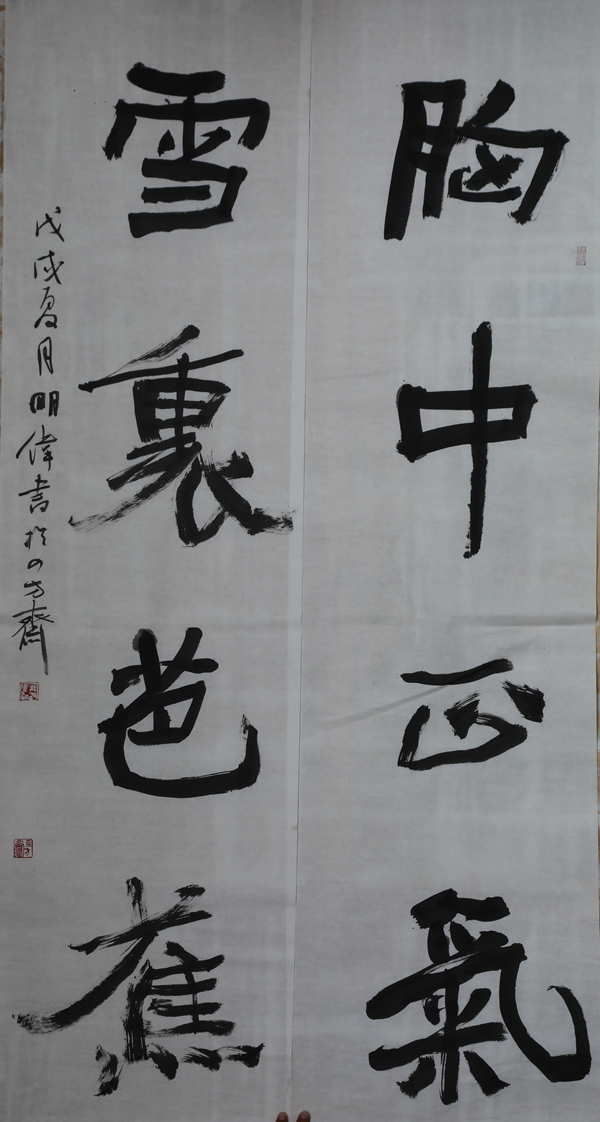 胸中正氣
雪裏芭蕉
戊戌夏月明偉書於四方齋